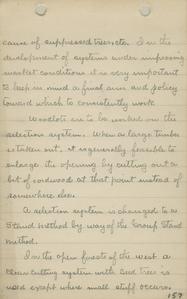 cause of suppressed trees etc. In the
development of systems under improving
market conditions it is very important
to keep in mind a final aim and policy
toward which to consistently work.
Woodlots are to be worked on the
selection system. When a large timber
is taken out, it is generally feasible to
enlarge the opening by cutting out a
bit of cordwood at that point instead of
somewhere else.
A selection system is changed to a
Stand Method by way of the Group Stand
method.
In the open forests of the west a
clean cutting system with Seed Trees is
used except where small stuff occurs.
157